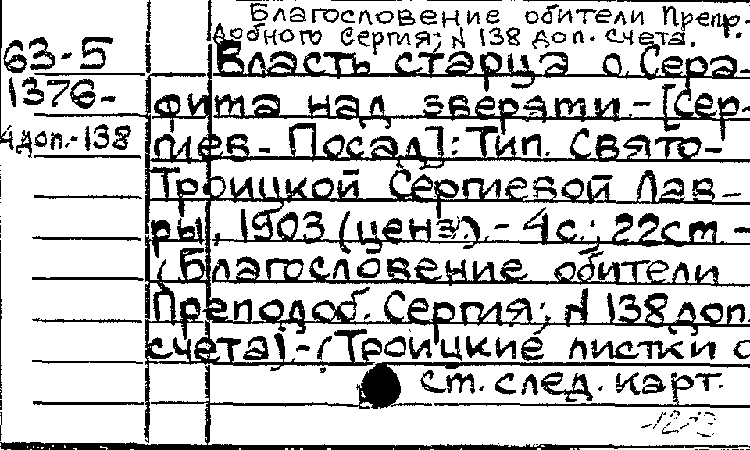 Благословение обители Препр.
добного Сергия; N 138 доп. счета.
63-5 Власть старца о. Сера-
1376- фима над зверями. - [Сер-
4доп.-138 гиев-Посад]: Тип. Свято-
Троицкой Сергиевой Лав-
ры, 1903 (ценз.). - 4 с.; 22 см. -
(Благословение обители
Преподоб. Сергия; N 138 доп.
счета). - (Троицкие листки о
См. след. карт.